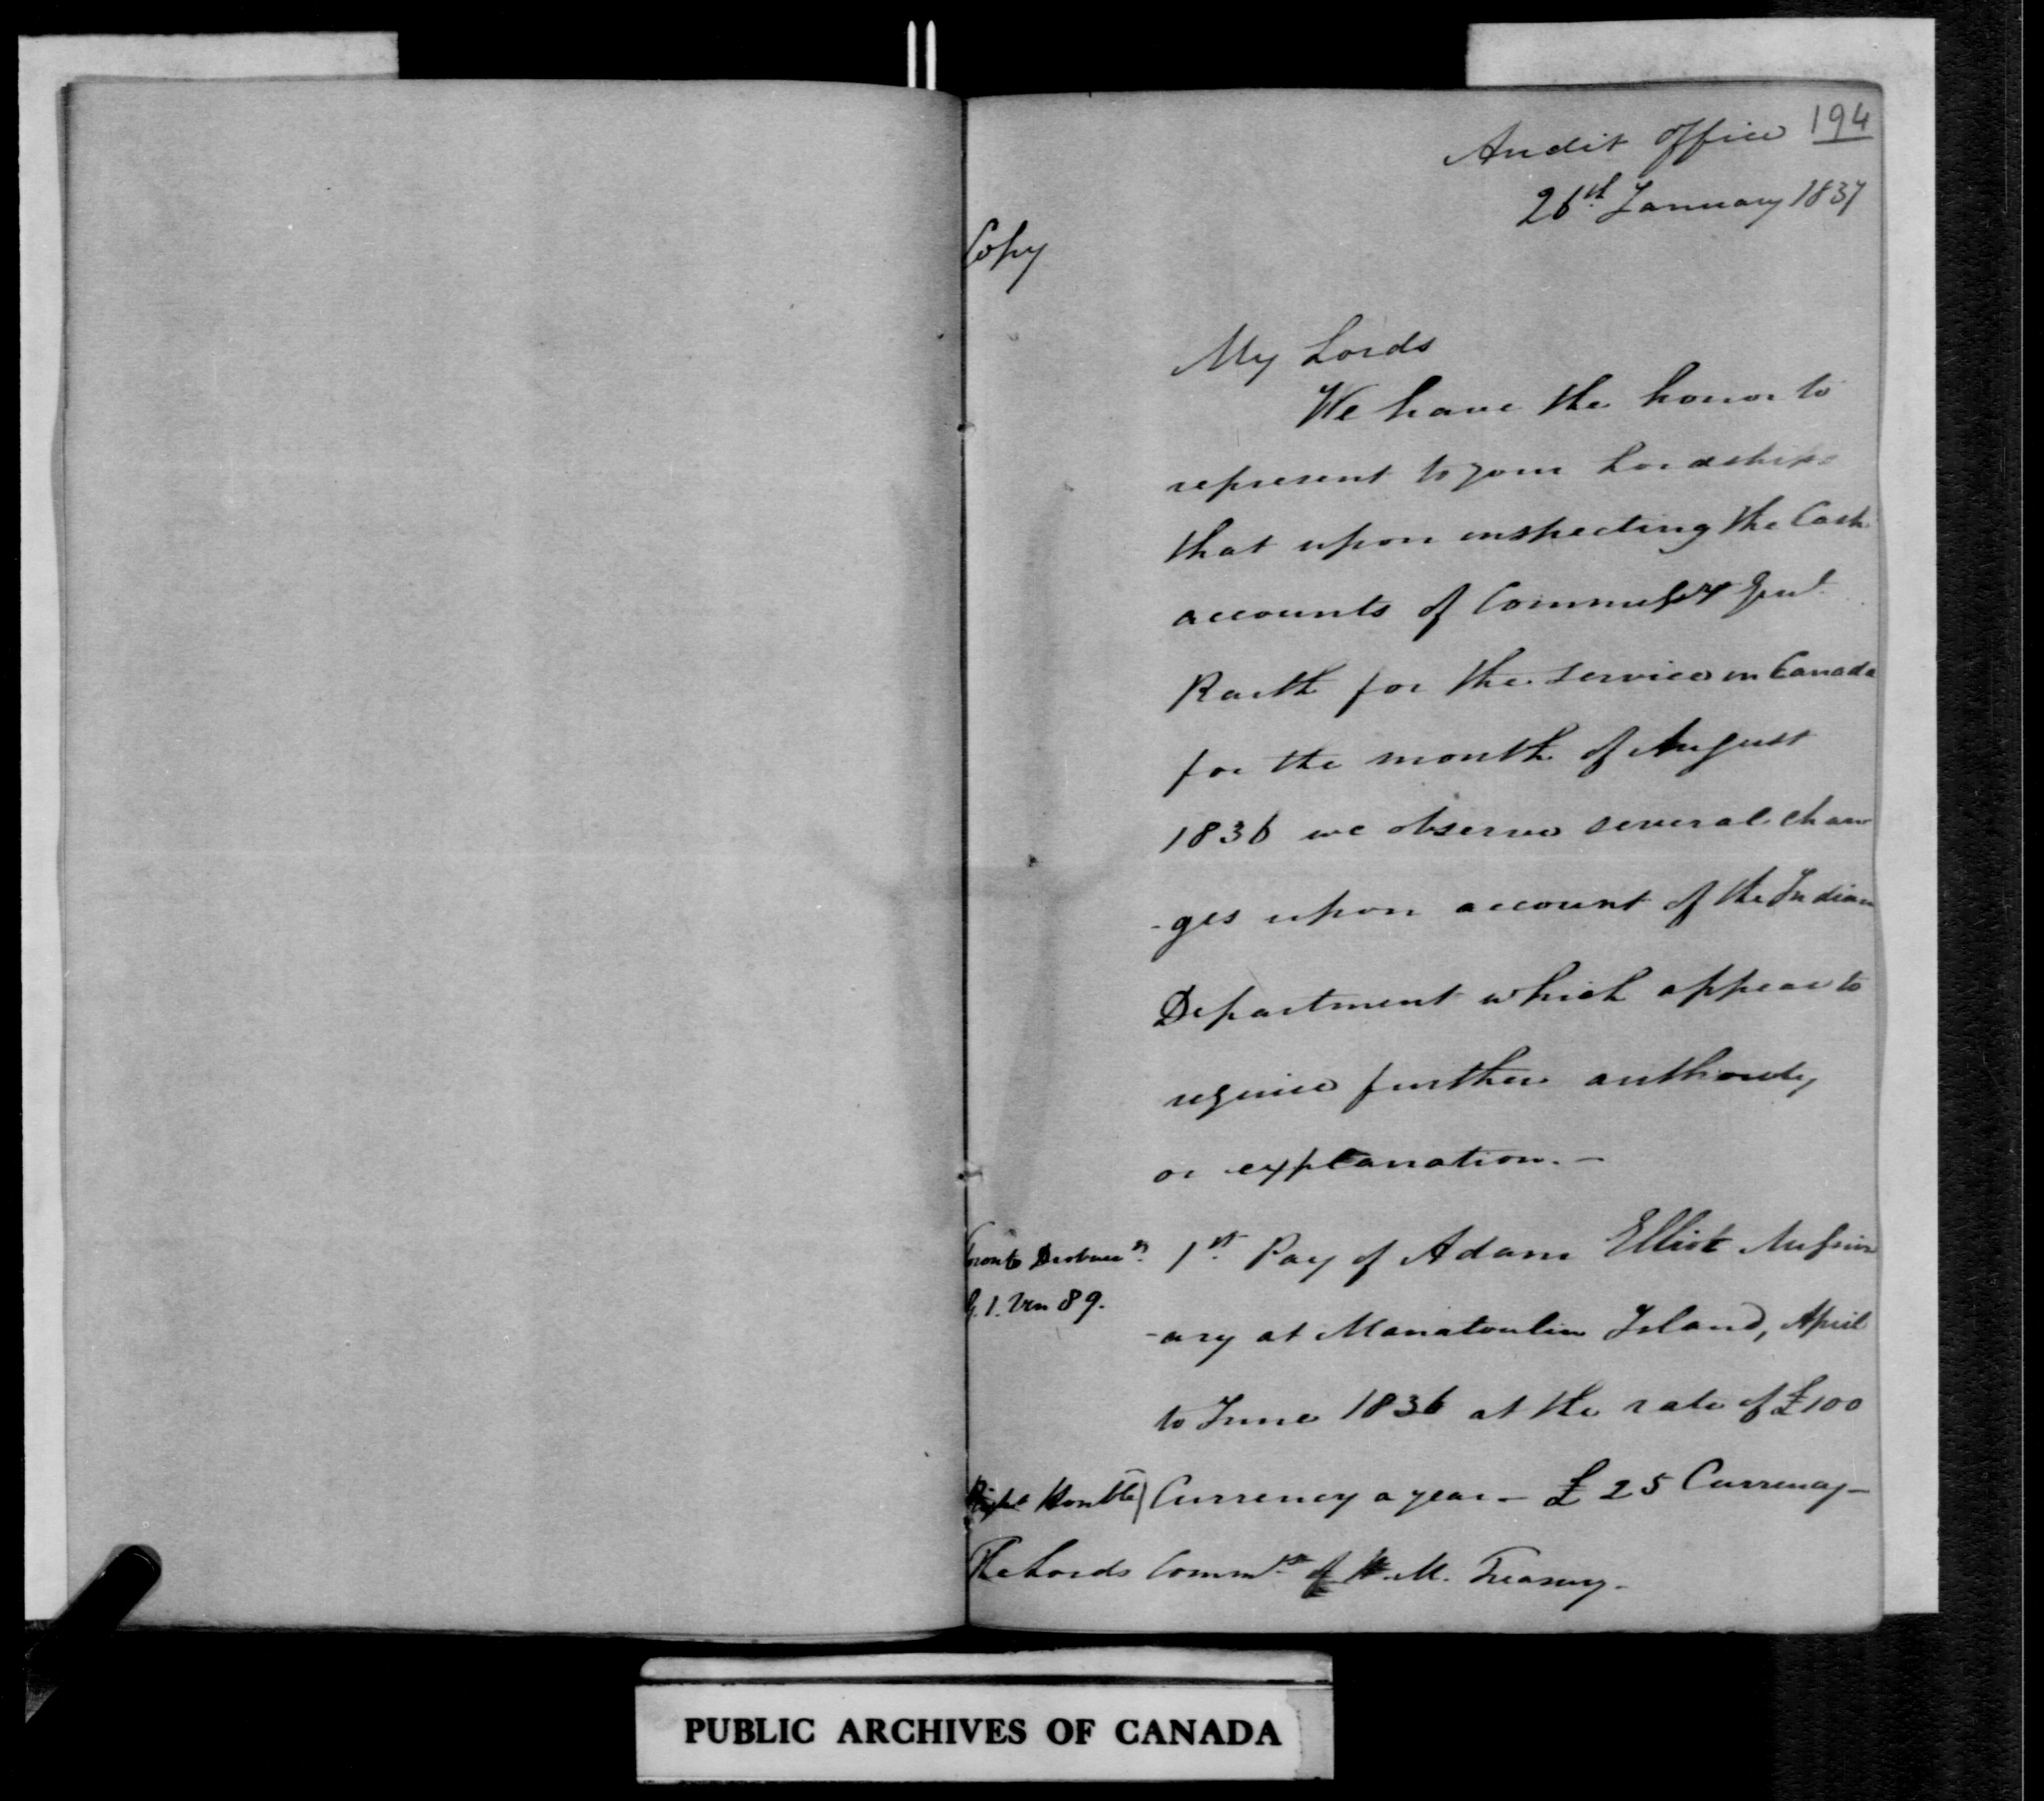 194
Audit Office
26th January 1837
Copy
My Lords
We have the honor to
represent to your Lordships
that upon inspecting the Cash
accounts of Commissy Genl
Routh for the service in Canada
for the month of August
1836 we observe several char
-ges upon account of the Indian
Department which appear to
require further authority
or explanation. -
Toronto Disbursts
G. 1. Vru 89.
1st Pay of Adam Elliot Mission
-ary at Manatoulin Island, April
to June 1836 at the rate of £100
Currency a year - £25 Currency -
Right Honble
The Lords Commrs of H. M. Treasury.
PUBLIC ARCHIVES OF CANADA